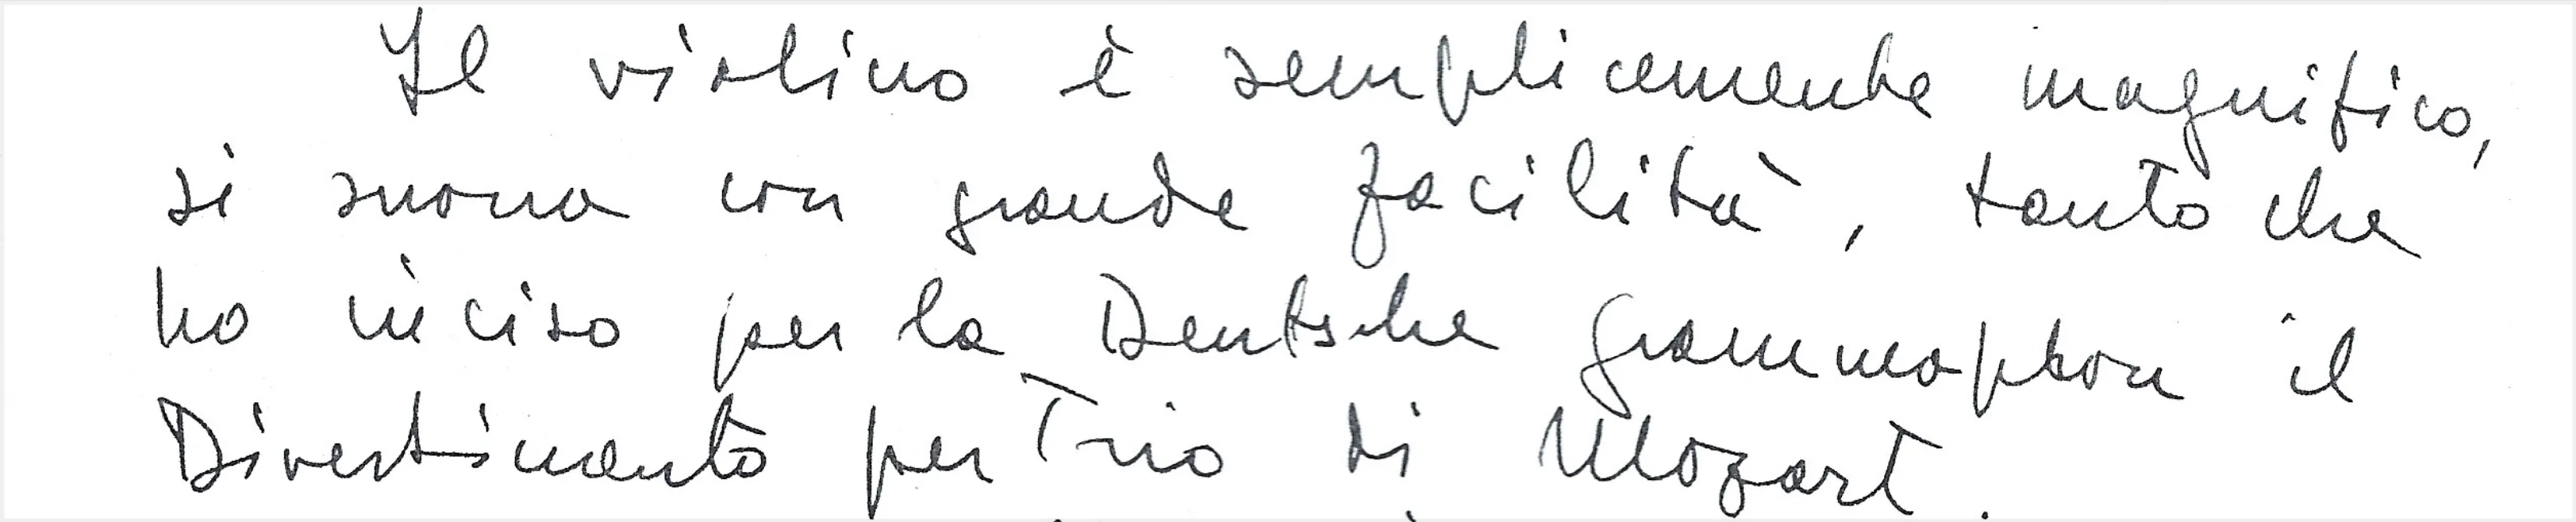 Il violino è semplicemente magnifico,
si suona con grande facilità, tanto che
ho inciso per la Deutsche Grammophon il
Divertimento per Trio di Mozart.